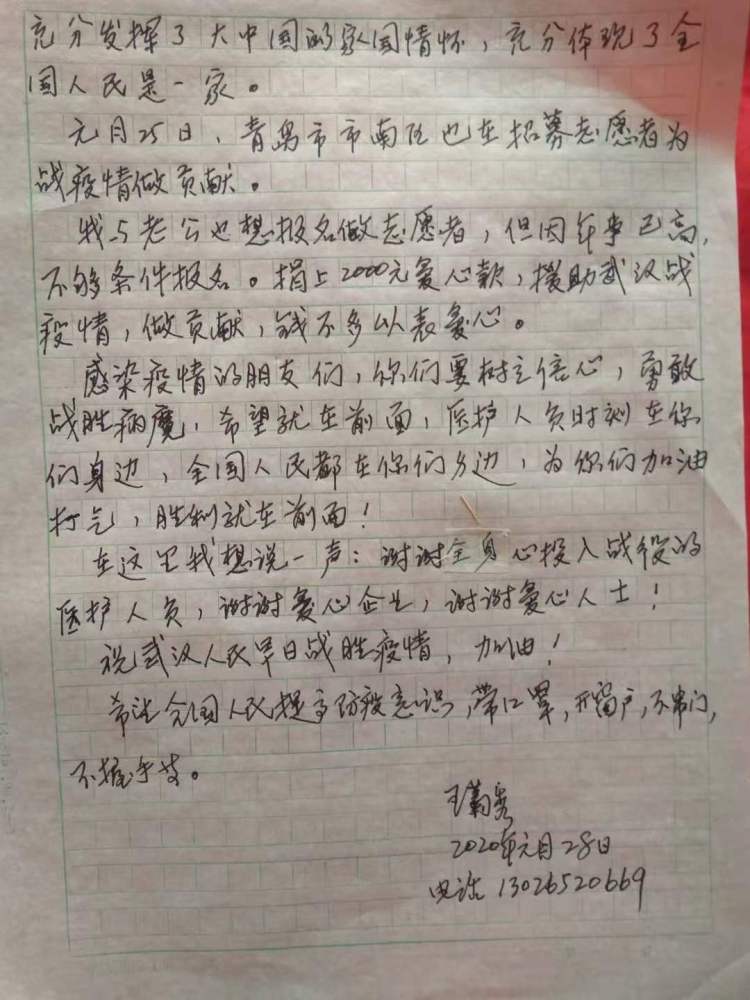 充分发挥了大中国的家国情怀，充分体现了全
国人民是一家。
元月25日，青岛市市南区也在招募志愿者为
战疫情做贡献。
我与老公也想报名做志愿者，但因年事已高，
不够条件报名。捐上2000元爱心款，援助武汉战
疫情，做贡献，钱不多以表爱心。
感染疫情的朋友们，你们要树立信心，勇敢
战胜病魔，希望就在前面，医护人员时刻在你
们身边，全国人民都在你们身边，为你们加油
打气，胜利就在前面！
在这里我想说一声：谢谢全身心投入战役的
医护人员，谢谢爱心企业，谢谢爱心人士！
祝武汉人民早日战胜疫情，加油！
希望全国人民提高防疫意识，带口罩，开窗户，不串门，
不握手等。
王菊秀
2020年元月28日
电话 13026520669